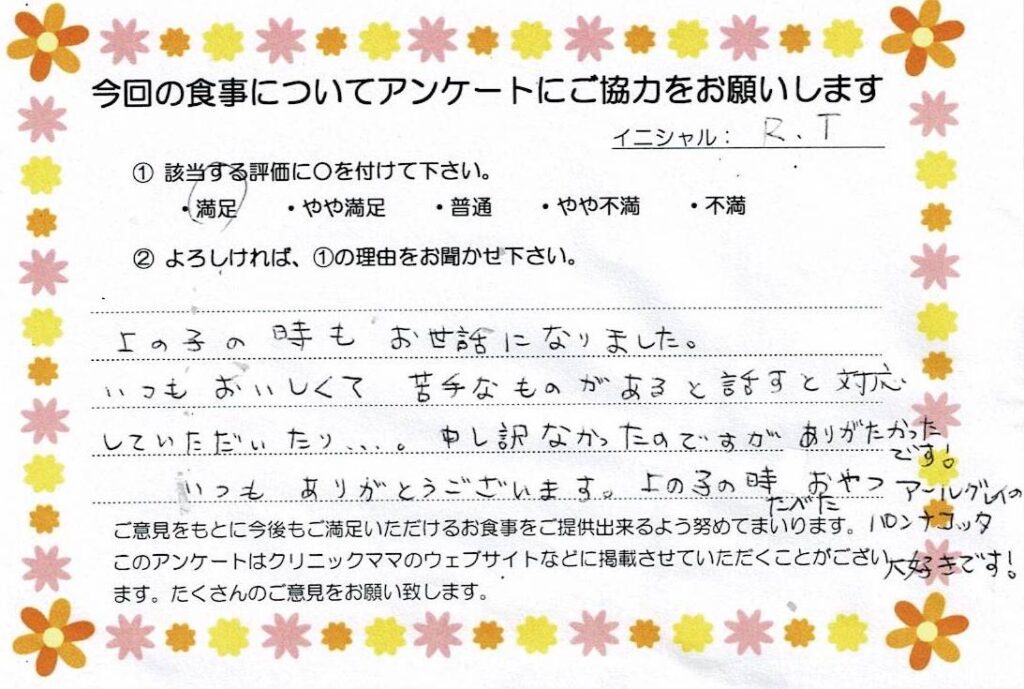 今回の食事についてアンケートにご協力をお願いします
イニシャル： R.T
① 該当する評価に〇を付けて下さい。
・満足 ・やや満足 ・普通 ・やや不満 ・不満
② よろしければ、①の理由をお聞かせ下さい。
上の子の時も お世話になりました。
いつも おいしくて 苦手なものがあると話すと対応
していただいたり、、、。申し訳なかったのですが ありがたかった
です！
いつも ありがとうございます。上の子の時 おやつ アールグレイの
たべた
パンナコッタ
大好きです！
ご意見をもとに今後もご満足いただけるお食事をご提供出来るよう努めてまいります。
このアンケートはクリニックママのウェブサイトなどに掲載させていただくことがござい
ます。たくさんのご意見をお願い致します。